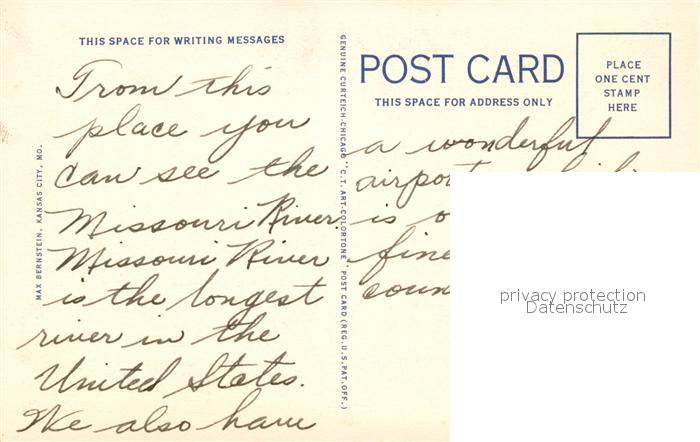 THIS SPACE FOR WRITING MESSAGES
From this
place you
can see the
Missouri River.
Missouri River
is the longest
river in the
United States.
We also have
MAX BERNSTEIN, KANSAS CITY, MO.
GENUINE CURTEICH-CHICAGO "C.T. ART-COLORTONE" POST CARD (REG. U.S. PAT. OFF.)
POST CARD
THIS SPACE FOR ADDRESS ONLY
PLACE
ONE CENT
STAMP
HERE
a wonderful
is
privacy protection
Datenschutz